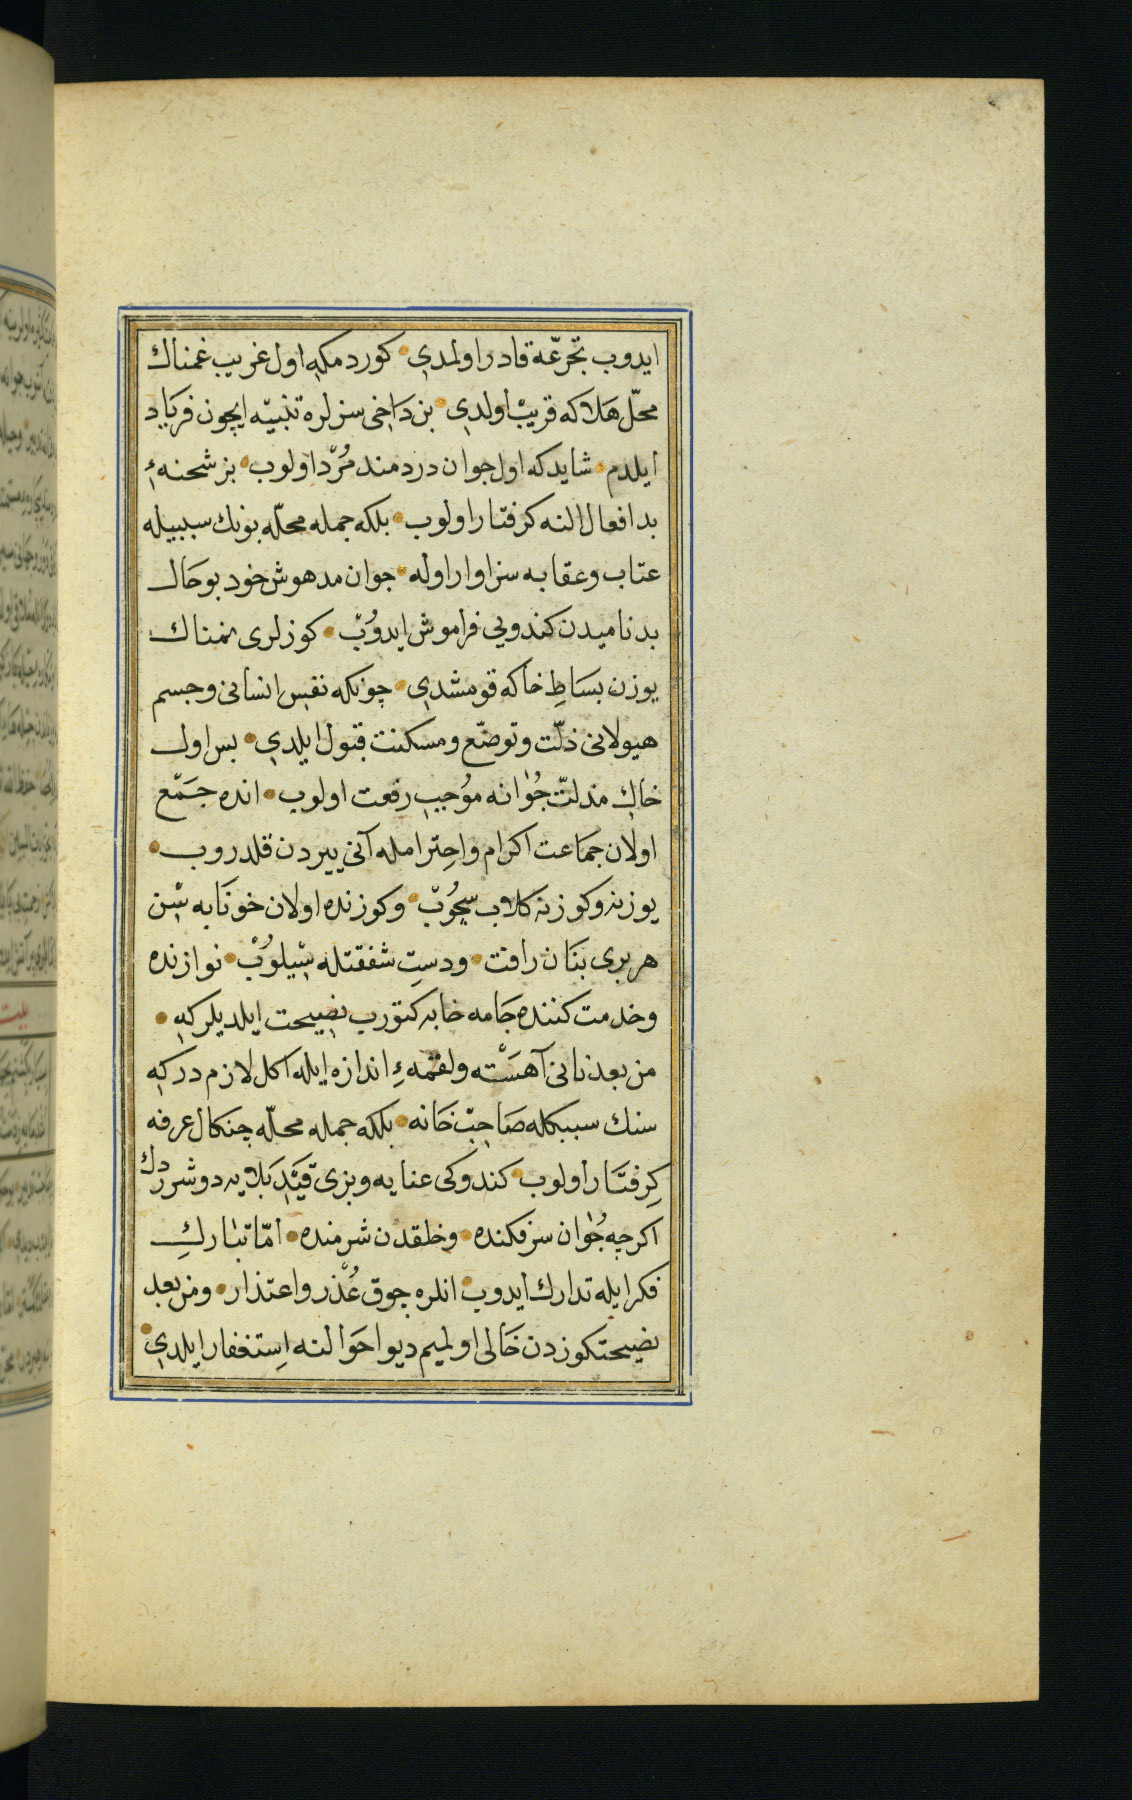 ايدوب تجرّعه قادر اولمدي كوردمكه اول غريب غمناك
محلّ هلاكه قريب اولدي بن داخى سزلره تنبيه ايچون فرياد
ايلدم شايدكه اول جوان دردمند مُرّد اولوب بز شحنهٔ
بدافعال النه كرفتار اولوب بلكه جمله محلّه بونك سببيله
عتاب وعقابه سزاوار اوله جوان مدهوش خود بوحال
بدناميدن كندويي فراموش ايدوُبْ كوزلرى نمناك
يوزن بسَاطِ خاكه قومشدي چونكه نفسِ انسانى وجسم
هيولانى ذلّت وتوضّع ومسكنت قبول ايلدي بس اول
خاكِ مذلتّ جُوانه مُوجبِ رفعت اولوب انده جَمْع
اولان جمَاعت اكرام واحِترامله آنى ييردن قلدروب
يوزنه وكوزنه كلاب سچوُبْ وكوزنده اولان خونَابه سْن
هربرى بنَان رافت ودستِ شفقتله سْيلوُبْ نوازنده
وخدمت كننده جَامه خابه كتورب نصيحت ايلديلركه
من بعد نانى آهسَْته ولقمهٔ اندازه ايله اكل لازم دركه
سنك سببكله صَاحِبْ خَانه بلكه جمله محلّه چنكال عرفه
كِرفتَار اولوب كندوكى عنايه وبزى قَيْدِ بَلايه دوشرردك
اكرچه جُوان سرفكنده وخلقدن شرمنده امّا تبَاركِ
فكر ايله تدارك ايدوب انلره چوق عُذر واعتذار ومن بعد
نصيحتكوزدن خَالى اولميم ديو احَوالنه اِستغفار ايلدي
بيت